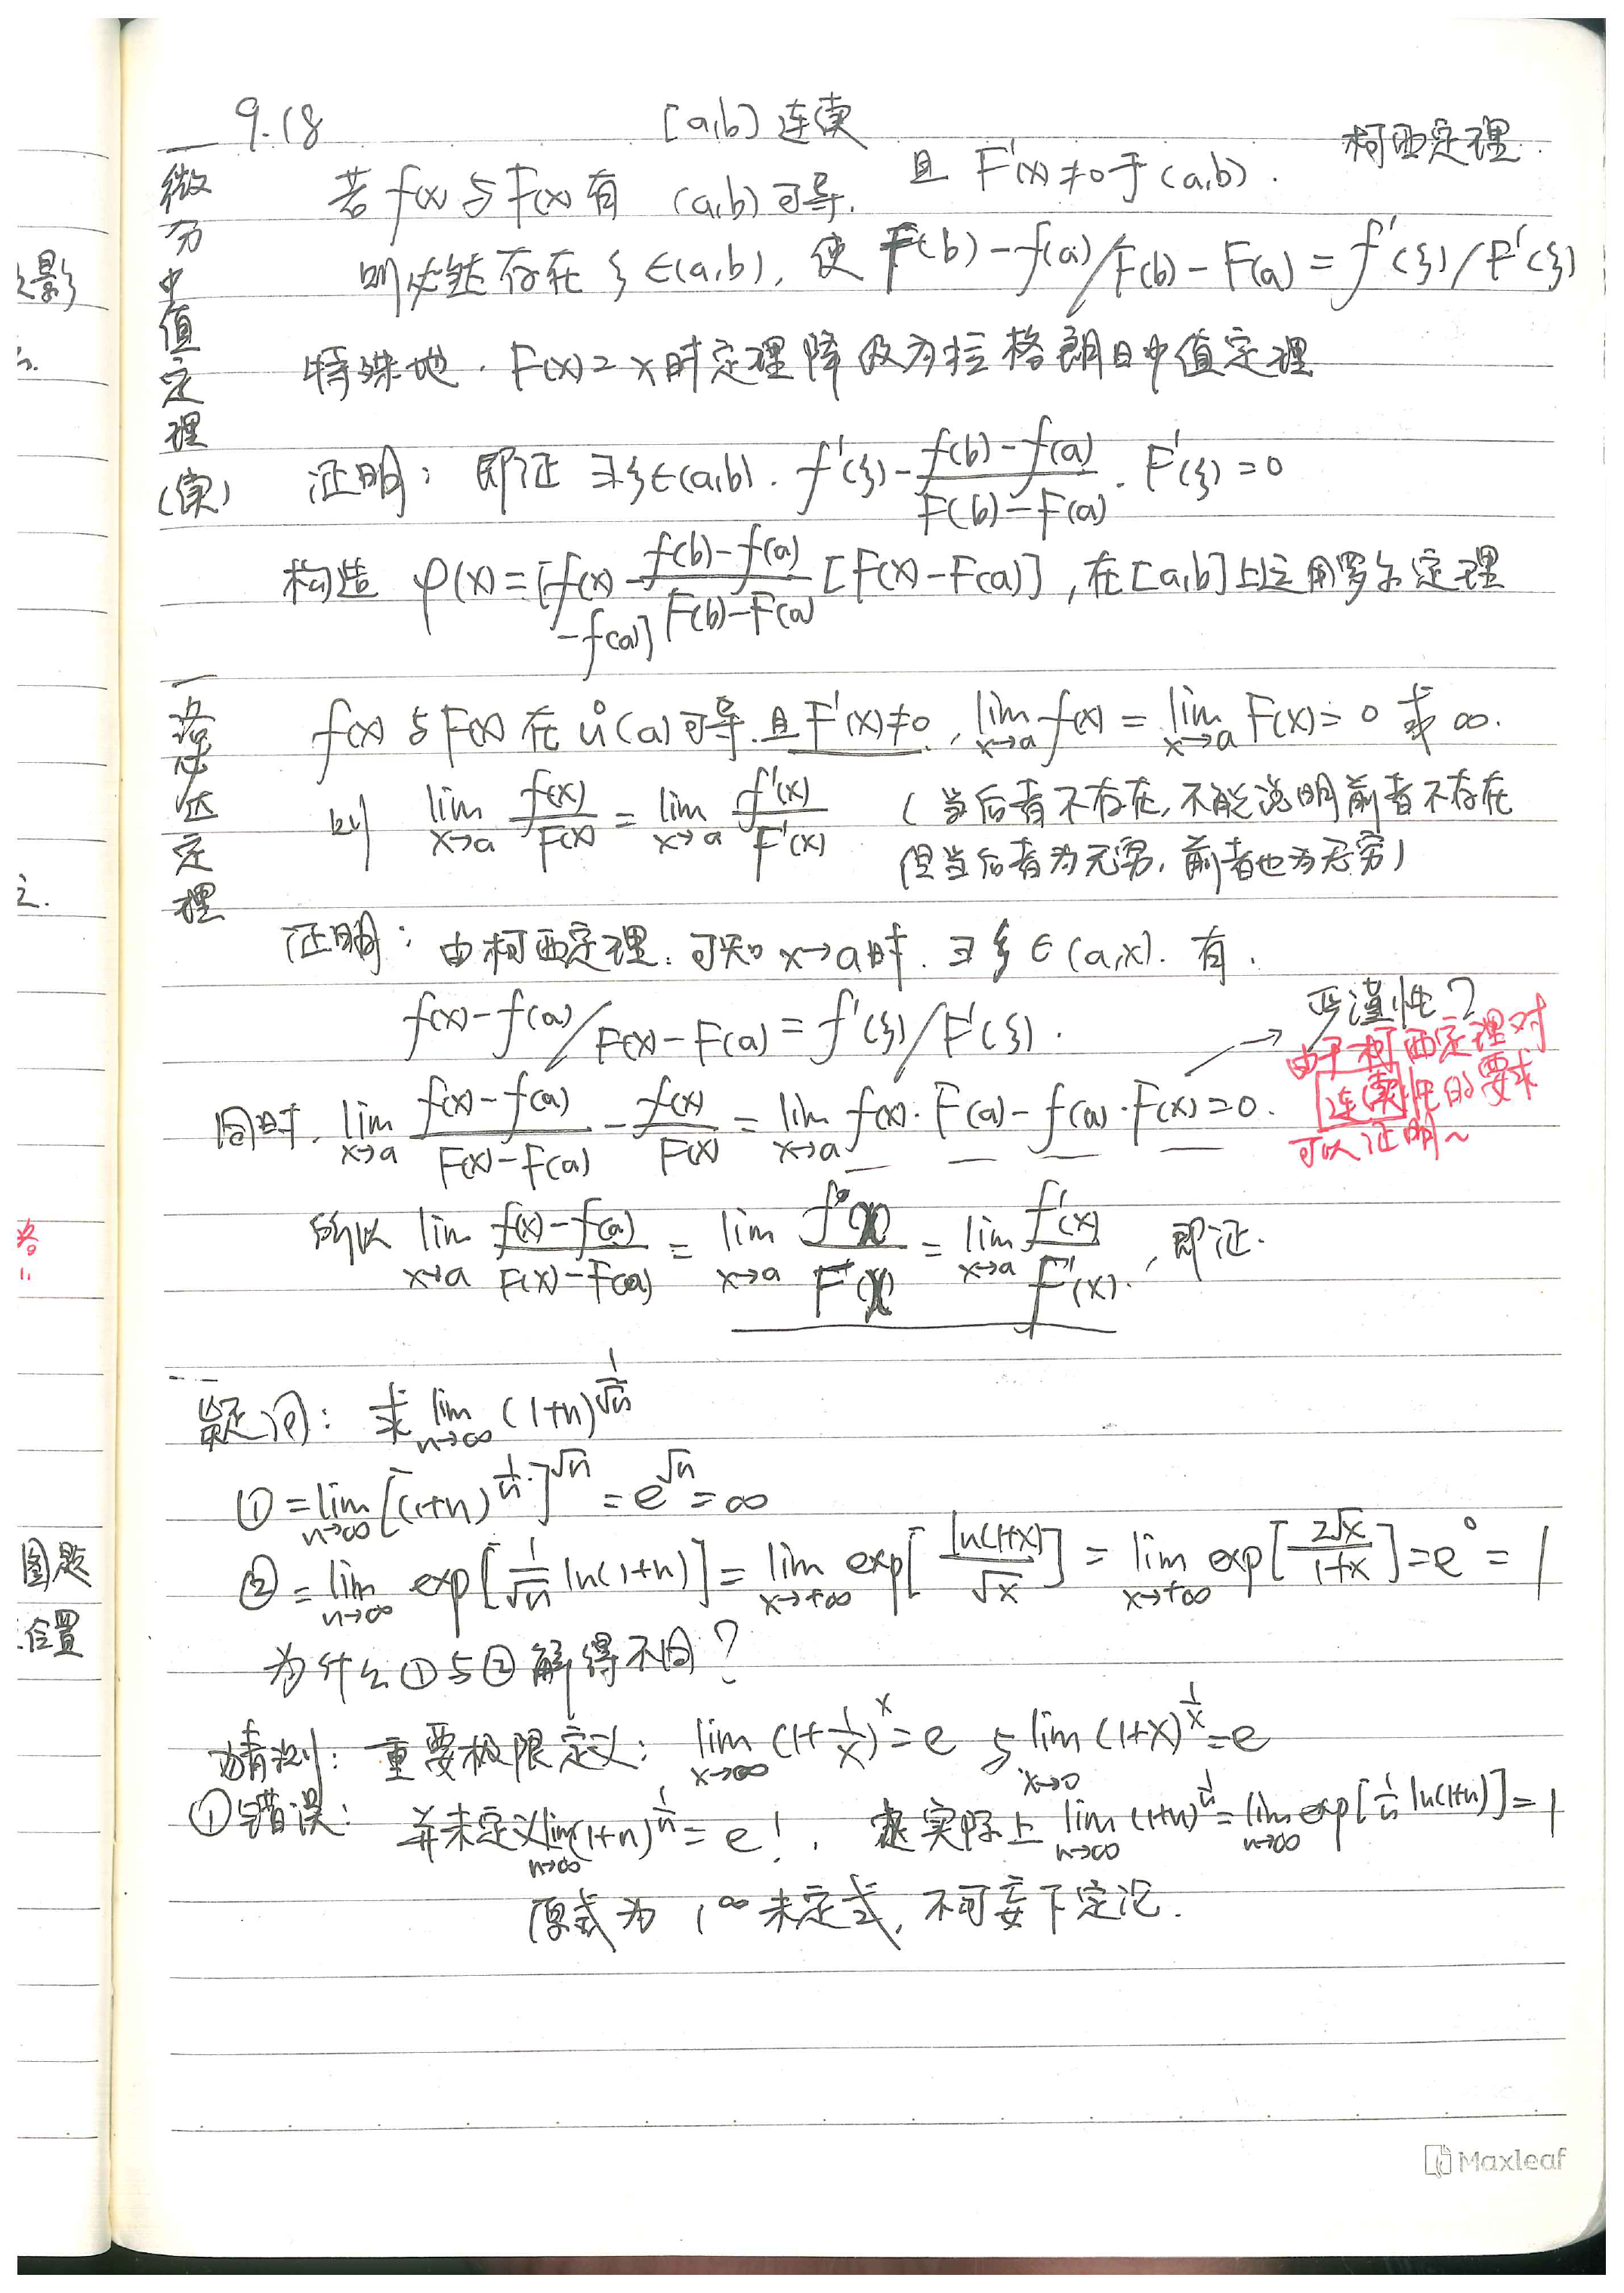 9.18
[a,b] 连续
柯西定理.
微分中值定理(续)
若 f(x) 与 F(x) 有 (a,b) 可导. 且 F'(x) ≠ 0 于 (a,b).
则必然存在 ξ∈(a,b), 使 f(b)-f(a)/F(b)-F(a) = f'(ξ)/F'(ξ)
特殊地. F(x)=x 时定理降级为拉格朗日中值定理
证明: 即证 ∃ξ∈(a,b). f'(ξ) - \frac{f(b)-f(a)}{F(b)-F(a)} · F'(ξ) = 0
构造 φ(x) = [f(x)-f(a)] - \frac{f(b)-f(a)}{F(b)-F(a)} [F(x)-F(a)], 在[a,b]上运用罗尔定理
洛必达定理
f(x) 与 F(x) 在 ů(a) 可导. 且 F'(x)≠0, \lim_{x→a} f(x) = \lim_{x→a} F(x) = 0 或 ∞.
则 \lim_{x→a} \frac{f(x)}{F(x)} = \lim_{x→a} \frac{f'(x)}{F'(x)} (当后者不存在, 不能说明前者不存在
但当后者为无穷, 前者也为无穷)
证明: 由柯西定理. 可知 x→a 时. ∃ξ∈(a,x). 有.
f(x)-f(a)/F(x)-F(a) = f'(ξ)/F'(ξ).
→ 严谨性?
由于柯西定理对
连续性的要求
可以证明~
同时, \lim_{x→a} \frac{f(x)-f(a)}{F(x)-F(a)} - \frac{f(x)}{F(x)} = \lim_{x→a} f(x)·F(a) - f(a)·F(x) = 0.
所以 \lim_{x→a} \frac{f(x)-f(a)}{F(x)-F(a)} = \lim_{x→a} \frac{f(x)}{F(x)} = \lim_{x→a} \frac{f'(x)}{F'(x)}, 即证.
疑问: 求 \lim_{n→∞} (1+n)^{\frac{1}{\sqrt{n}}}
① = \lim_{n→∞} [(1+n)^{\frac{1}{n}}]^{\sqrt{n}} = e^{\sqrt{n}} = ∞
② = \lim_{n→∞} exp[\frac{1}{\sqrt{n}} ln(1+n)] = \lim_{x→+∞} exp[\frac{ln(1+x)}{\sqrt{x}}] = \lim_{x→+∞} exp[\frac{2\sqrt{x}}{1+x}] = e^0 = 1
为什么①与②解得不同?
猜测: 重要极限定义: \lim_{x→∞} (1+\frac{1}{x})^x = e 与 \lim_{x→0} (1+x)^{\frac{1}{x}} = e
①错误: 并未定义 \lim_{n→∞} (1+n)^{\frac{1}{n}} = e!. 实际上 \lim_{n→∞} (1+n)^{\frac{1}{n}} = \lim_{n→∞} exp[\frac{1}{n} ln(1+n)] = 1
原式为 1^∞ 未定式, 不可妄下定论.
影
之.
洛
图题
位置
Maxleaf